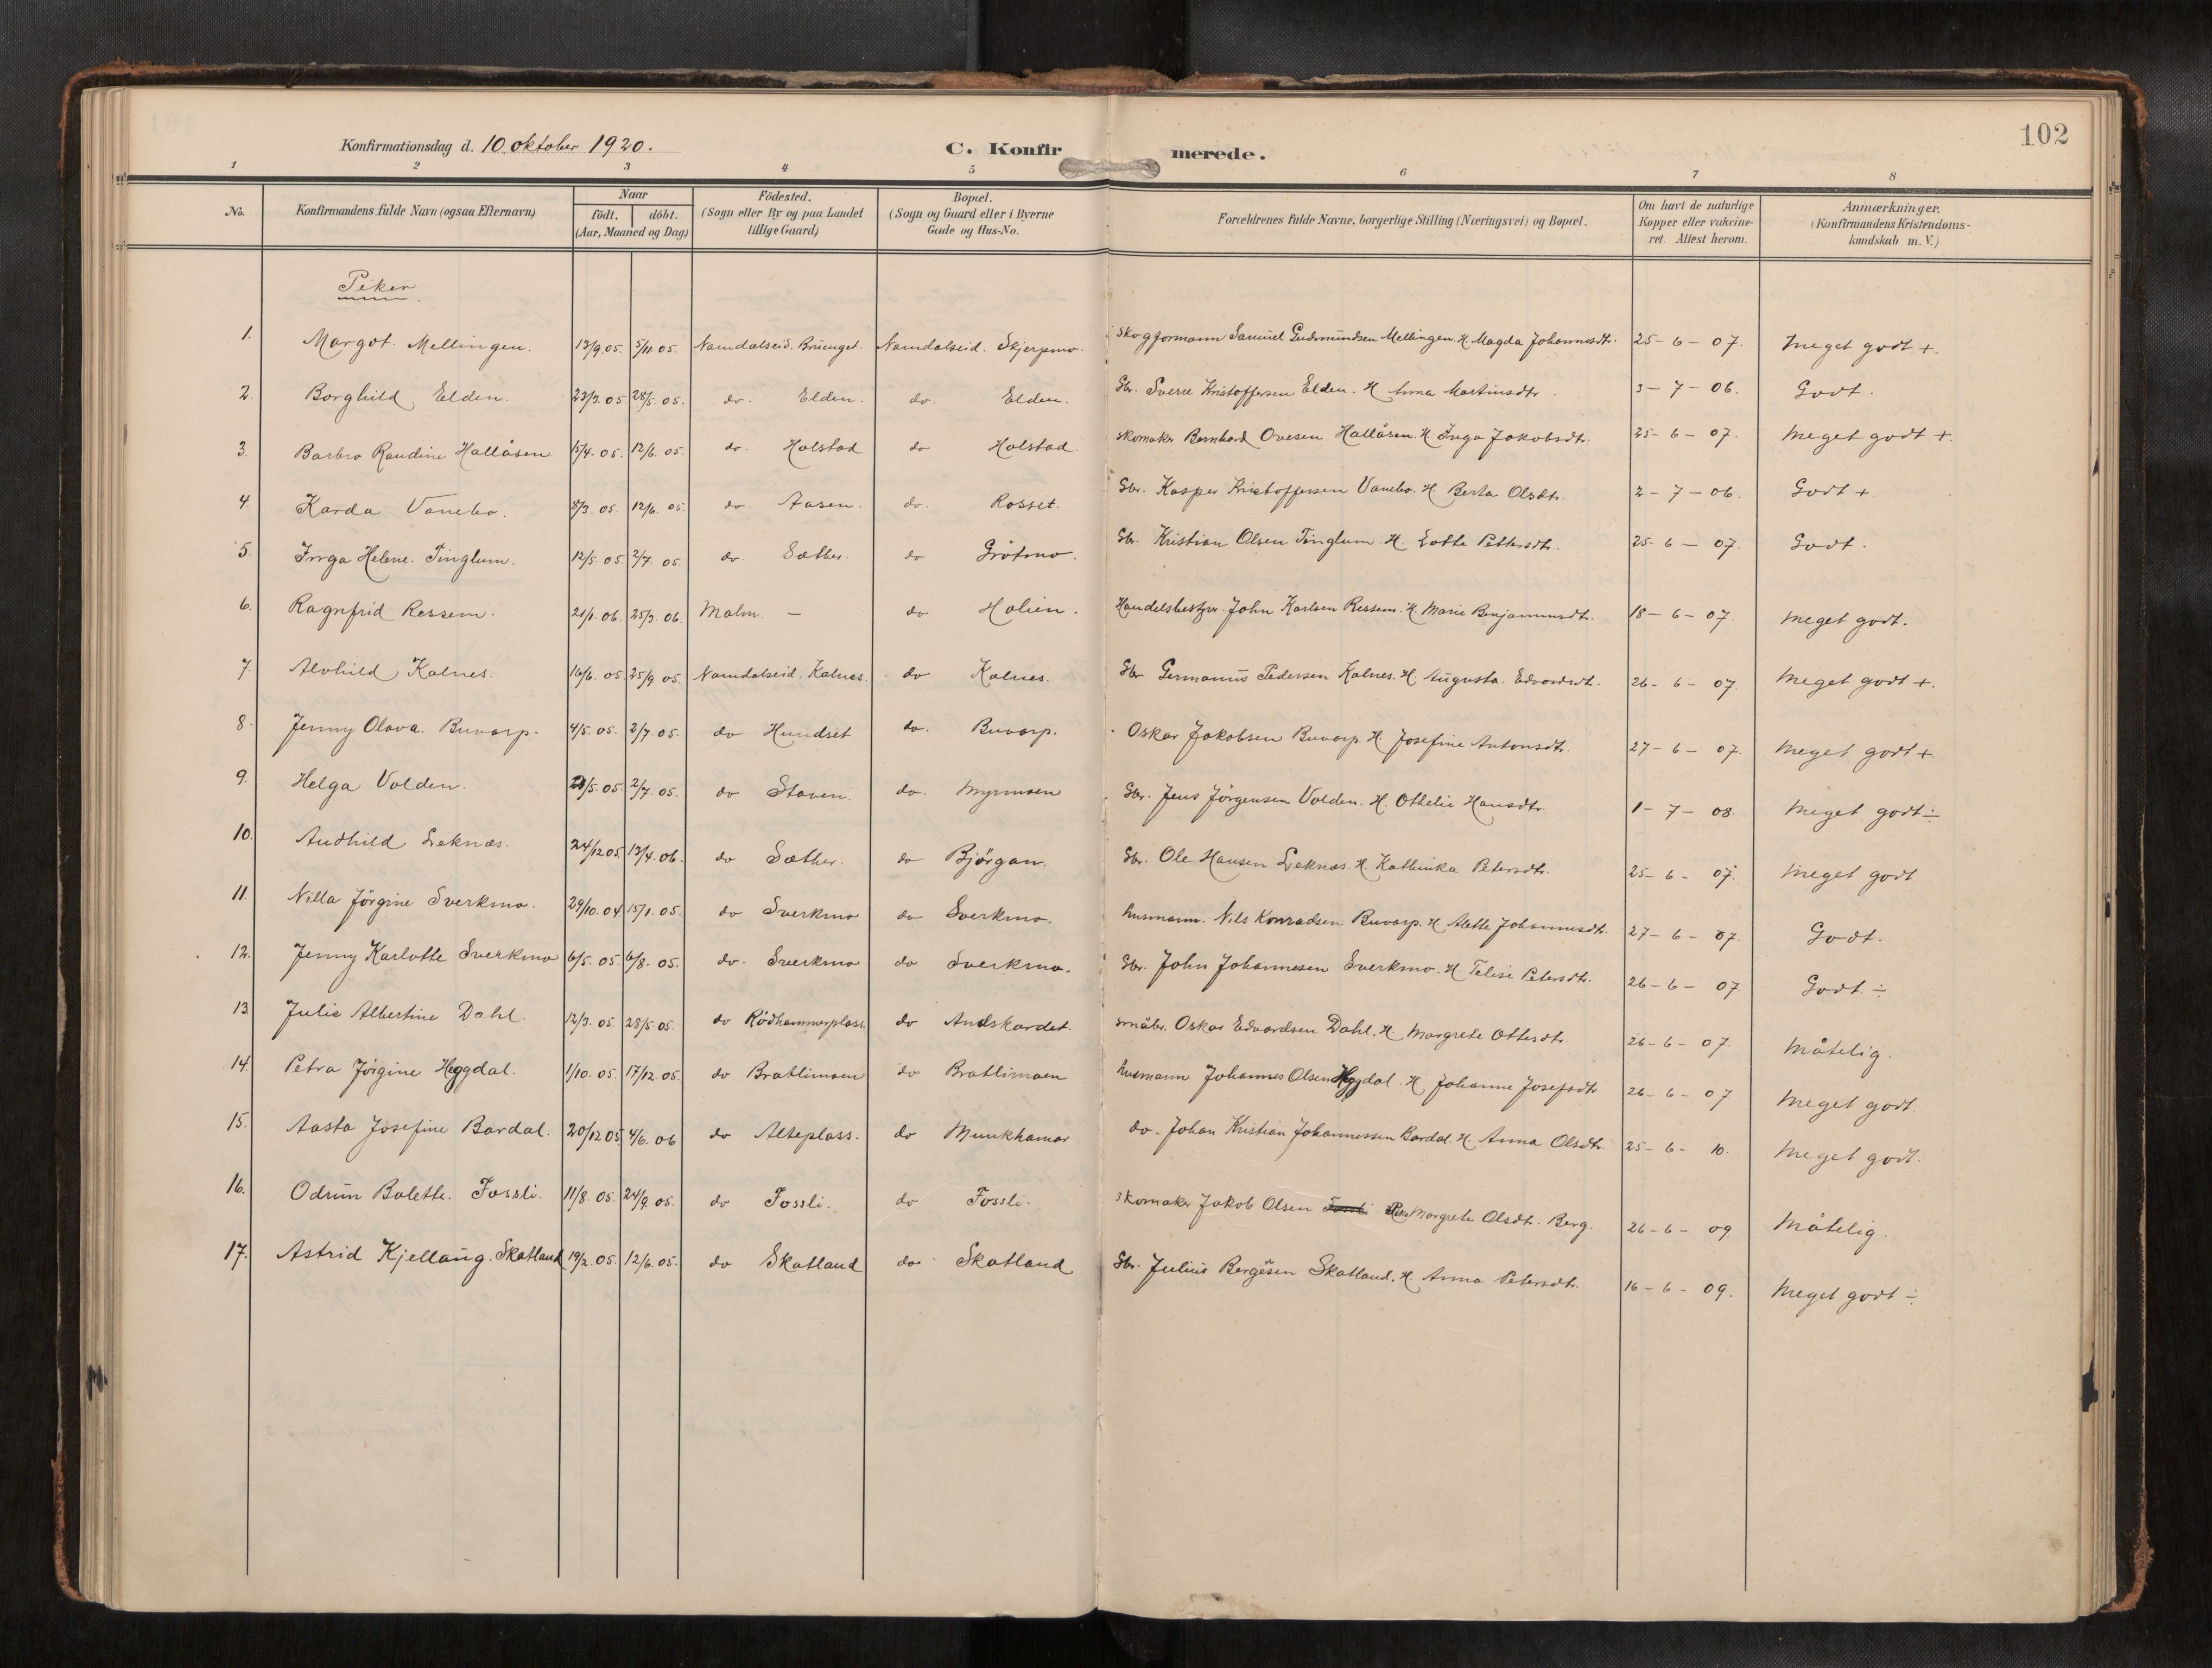 102
Konfirmationsdag d. 10. oktober 1920.
C. Konfirmerede.
1 2 3 4 5 6 7 8
No. Konfirmandens fulde Navn (ogsaa Efternavn) Naar födt. döbt. (Aar, Maaned og Dag) Födested. (Sogn eller By og paa Landet tillige Gaard) Bopæl. (Sogn og Gaard eller i Byerne Gade og Hus-No. Forældrenes fulde Navne, borgerlige Stilling (Næringsvei) og Bopæl. Om havt de naturlige Kopper eller vakcineret. Attest herom. Anmærkninger. (Konfirmandens Kristendomskundskab m. V.)
Piker
1. Margot Mellingen. 13/9.05. 5/11.05. Namdalseid. Namdalseid. Skjerpmo. Skogformann Samuel Gudmundsen Mellingen. H. Magda Johannesdt. 25-6-07. Meget godt +.
2. Borghild Elden. 23/3.05. 28/5.05. do. Elden. do. Elden. Gbr. Sverre Kristoffersen Elden. H. Anna Martinsdtr. 3-7-06. Godt.
3. Barbro Raudine Hallåsen 15/4.05. 12/6.05. do. Holstad do Holstad. Skomaker Bernhard Ovesen Hallåsen. H. Inga Jakobsdtr. 25-6-07. Meget godt +.
4. Karda Vanebo. 8/3.05. 12/6.05. do Aasen. do. Rosset. Gbr. Kasper Kristoffersen Vanebo. H. Berta Olsdtr. 2-7-06. Godt +
5. Inga Helene Tinglum. 12/5.05. 2/7.05. do. Sæther. do Grötmo. Gbr. Kristian Olsen Tinglum. H. Lotte Pettersdtr. 25-6-07. Godt.
6. Ragnfrid Ressem. 21/1.06. 25/3.06. Malm. — do Holien. Handelsbestyr. John Karlsen Ressem. H. Marie Benjaminsdtr. 18-6-07. Meget godt.
7. Alvhild Kalnes. 16/6.05. 25/9.05. Namdalseid. Kalnes. do Kalnes. Gbr Germanus Pedersen Kalnes. H. Augusta Edvardsdt. 26-6-07. Meget godt +.
8. Jenny Olava Buvarp. 4/5.05. 2/7.05. do Hundset do. Buvarp. Oskar Jakobsen Buvarp. H. Josefine Antonsdtr. 27-6-07. Meget godt +
9. Helga Volden. /5.05. 2/7.05. do Staven. do. Myrmoen Gbr. Jens Jörgensen Volden. H. Othelie Hansdtr. 1-7-08. Meget godt ÷
10. Audhild Leknæs. 24/12 05 13/4.06. do Sæther. do Bjørgan. Gbr. Ole Hansen Leknæs. H. Kathinka Petersdtr. 25-6-07. Meget godt
11. Nilla Jörgine Sverkmo. 29/10.04 15/1.05. do Sverkmo do Sverkmo. husmann. Nils Konradsen Buvarp. H. Alette Johannesdt. 27-6-07. Godt.
12. Jenny Karlotte Sverkmo 6/5.05. 6/8.05. do. Sverkmo do Sverkmo. Gbr. John Johannesen Sverkmo. H. Telise Petersdtr. 26-6-07 Godt. ÷
13. Julie Albertine Dahl. 12/3.05. 28/5.05. do Rödhammerplass. do Andskardet. småbr. Oskar Edvardsen Dahl. H. Margrete Ottersdtr. 26-6-07. Måtelig.
14. Petra Jörgine Heggdal. 1/10.05. 17/12.05. do Bratlimoen do Bratlimoen husmann Johannes Olsen Heggdal. H. Johanne Josefsdtr 26-6-07 Meget godt.
15. Aasta Josefine Bardal. 20/12 05 4/6.06 do Alteplass. do Munkhamar do. Johan Kristian Johannessen Bardal. H. Anna Olsdtr. 25-6-10. Meget godt.
16. Odrun Bolette. Fossli. 11/8.05. 24/9.05. do Fossli. do Fossli. Skomaker Jakob Olsen Fossli Margrete Olsdt. Berg. 26-6-09 Måtelig.
17. Astrid Kjellaug. Skatland 19/2.05. 12/6.05. do Skatland do Skatland Gbr. Julius Bergesen Skatland. H. Anna Petersdtr. 16-6-09. Meget godt ÷